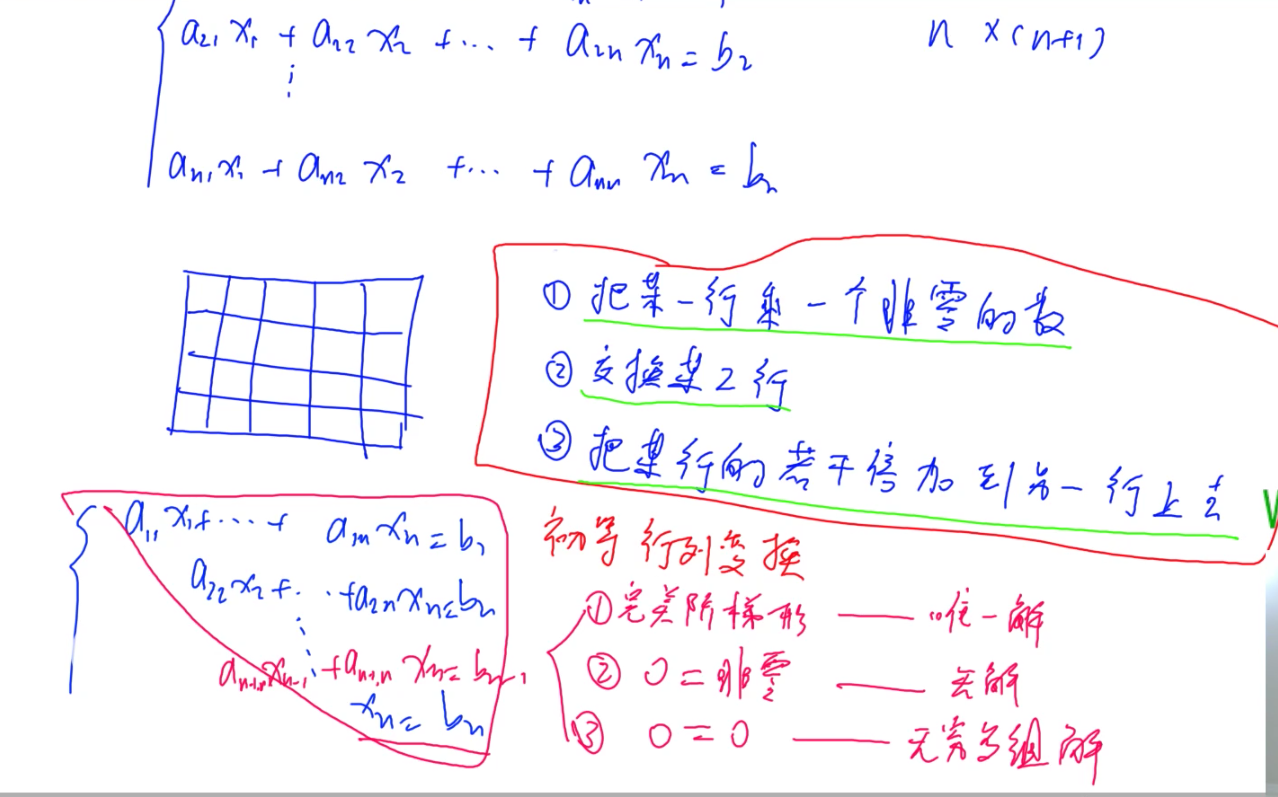 a₂₁x₁ + a₂₂x₂ + ... + a₂ₙxₙ = b₂
n×(n+1)
⋮
aₙ₁x₁ + aₙ₂x₂ + ... + aₙₙxₙ = bₙ
① 把某一行乘一个非零的数
② 交换某2行
③ 把某行的若干倍加到另一行上去
初等行列变换
a₁₁x₁+...+ a₁ₙxₙ=b₁
a₂₂x₂+...+a₂ₙxₙ=bₙ
⋮
aₙ₋₁,ₙ₋₁xₙ₋₁+aₙ₋₁,ₙxₙ=bₙ₋₁
xₙ=bₙ
① 完美阶梯形 —— 唯一解
② 0=非零 —— 无解
③ 0=0 —— 无穷多组解